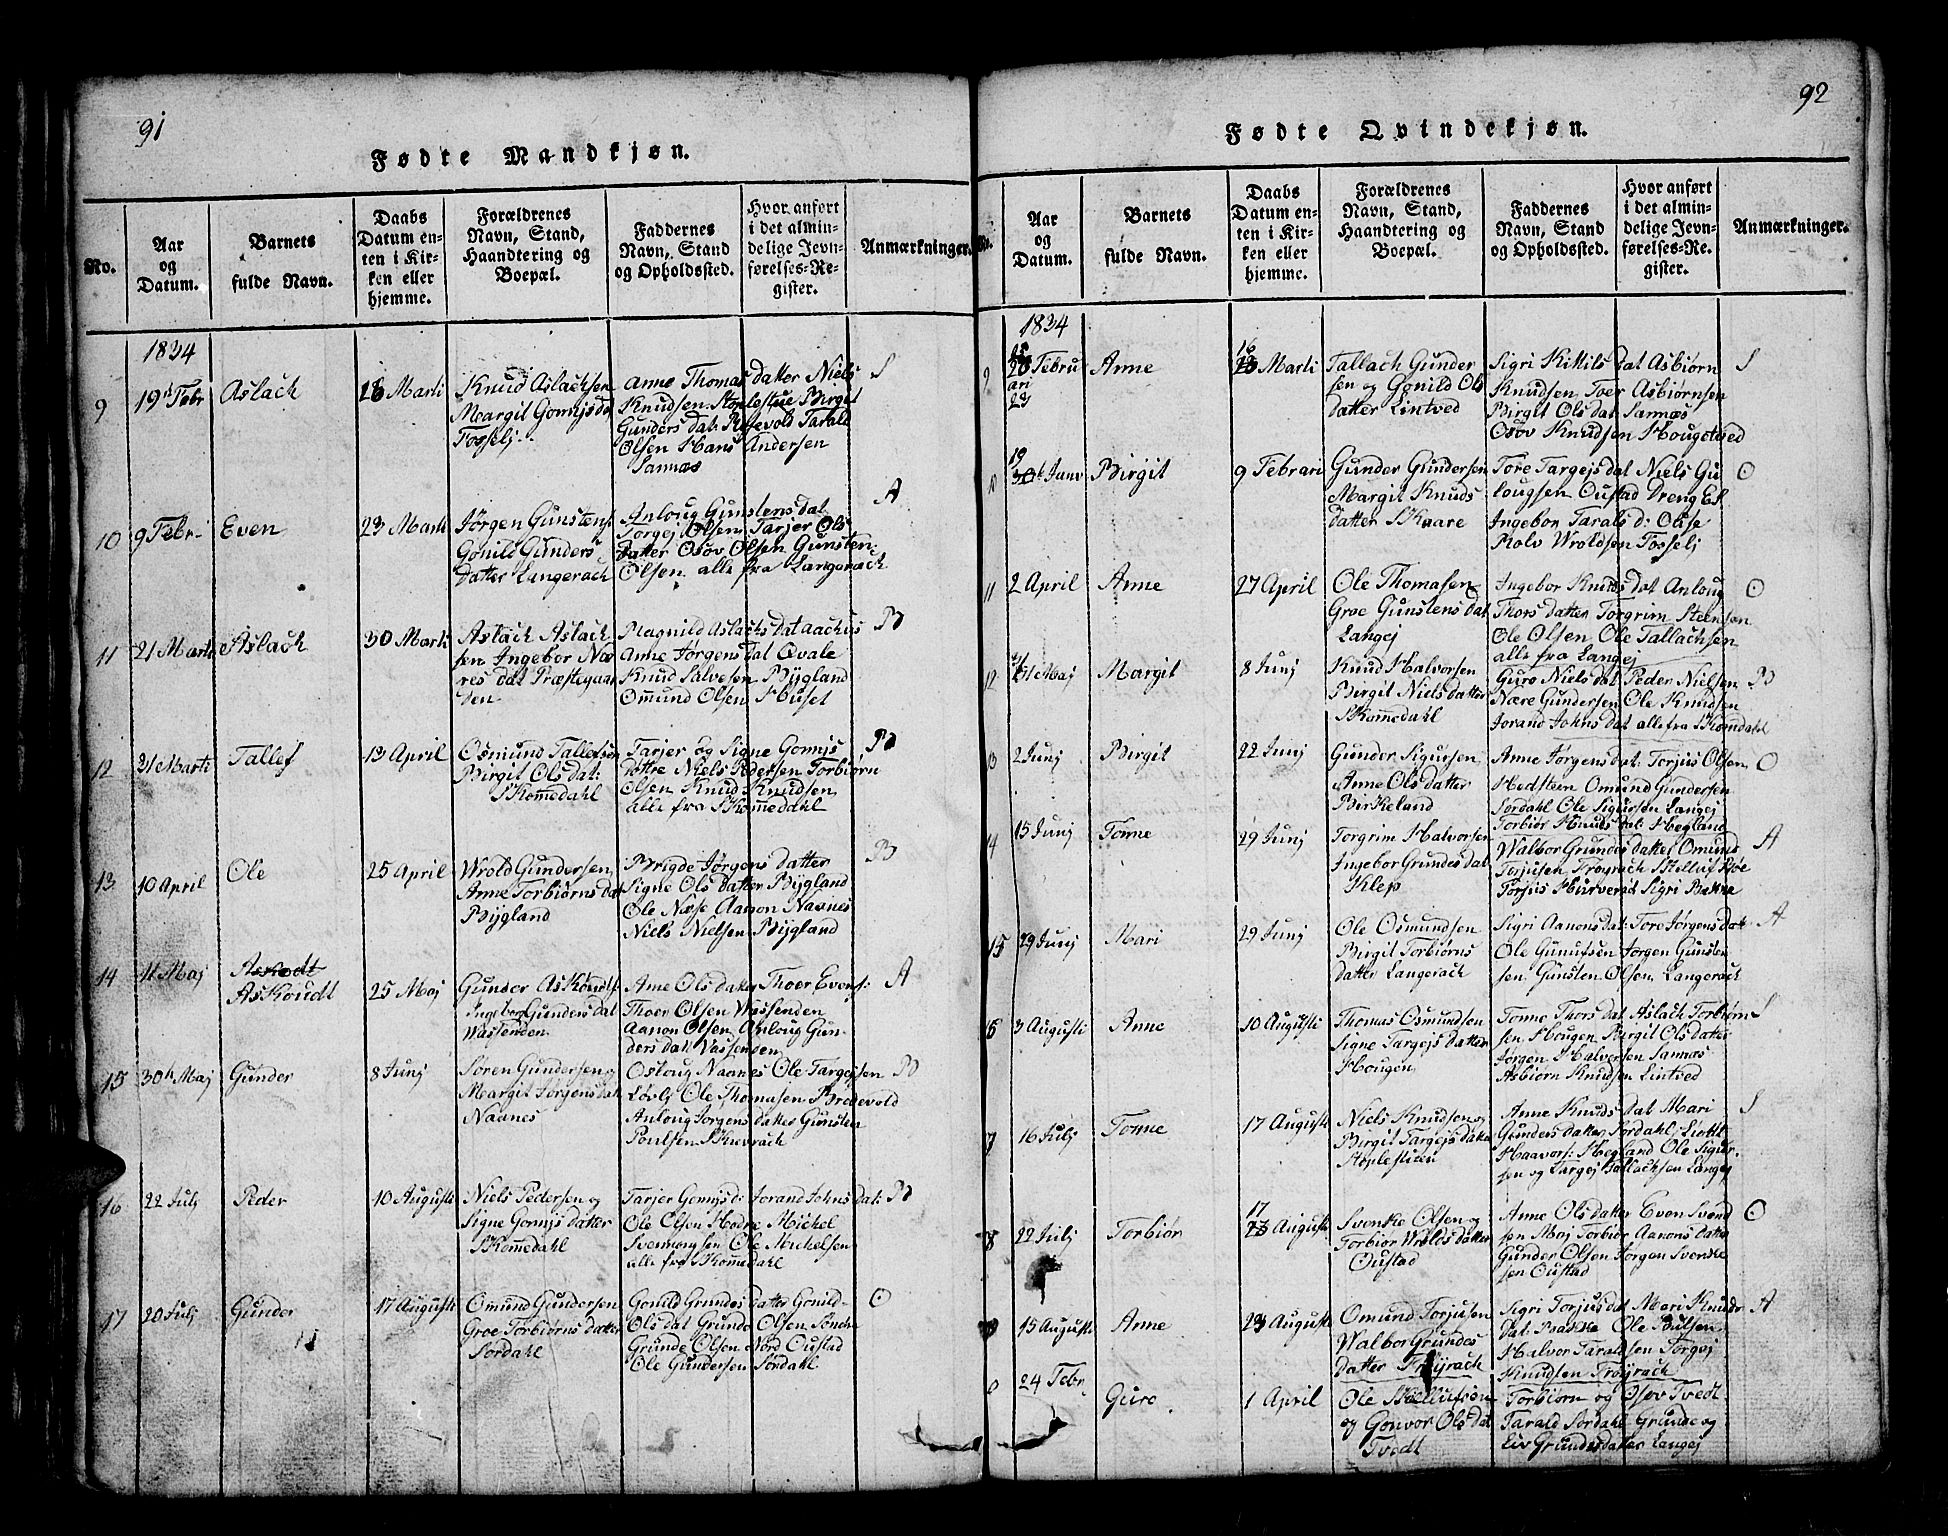 91
Fødte Mandkjøn.
No.
Aar og Datum.
Barnets fulde Navn.
Daabs Datum enten i Kirken eller hjemme.
Forældrenes Navn, Stand, Haandtering og Boepæl.
Faddernes Navn, Stand og Opholdssted.
Hvor anført i det almindelige Jevnførelses-Register.
Anmærkninger.
1834
9 19 Febr Aslach 16 Marti
Knud Aslachsen
Margit Gonnjsda
Fosselj
Anne Thomas datter Niels
Knudsen Stoplestue Birgit
Gunders dat: Tarald
Olsen Hans Andersen
Sannæs
S
10 9 Febr. Even 23 Marti
Jörgen Gunstens
Gonild Gunders
datter Langerach
Anloug Gunstens dat
Torgej Olsen Tarjer Ols
datter Osov Olsen Gunsten
Olsen alle fra Langerach
A
11 21 Marti Aslach 30 Marti
Aslach Aslach
sen Ingebor Næ
res dat Præstegaar
den
Magnild Aslachs dat
Anne Jörgens dat Qvale
Knud Salvesen Bÿgland
Ommund Olsen Huset
B
12 31 Marti Tallef 13 April
Osmund Tallefsen
Birgit Ols dat:
Skomedahl
Tarjer og Signe Gonnjs
döttre Niels Pedersen Torbiörn
Olsen Knud Knudsen
alle fra Skomedahl
B
13 10 April Ole 25 April
Wrold Gundersen
Anne Torbiörns dat
Bÿgland
Brigde Jörgens datter
Signe Ols datter Bÿgland
Ole Næse Aanon Naanes
Niels Nielsen Bÿgland
B
14 11 Maj Askoudt 25 Maj
Gunder Askoudts:
Ingeborg Gunders dat
Wassenden
Anne Ols datter Thoer Evens:
Thoer Olsen Wassenden
Aanon Olsen Anloug Gun-
ders dat: Vassenden
A
15 30 Maj Gunder 8 Junj
Sören Gundersen og
Margit Jörgens dat
Naanes
Osloug Naanes Ole Targejsen
Ole Thomasen Brodevold
Anloug Jorgens datter Gunsten
Poulsen Skievrach
B
16 22 Julj Peder 10 Augusti
Niels Pedersen og
Signe Gonnjs datter
Skomedahl
Tarjer Gonnjs d: Jorand Johns dat:
Ole Olsen Hodne Mickel
Svennungsen Ole Mickelsen
alle fra Skomedahl
B
17 20 Julj Gunder 17 Augusti
Omund Gundersen
Groe Torbiörns datter
Sordahl
Gonild Grundes datter Gonild
Ols dat Grunde Olsen
Grunde Olsen Nord Oustad
Ole Gundersen Sordahl
O
92
Fødte Qvindekjøn.
No.
Aar og Datum.
Barnets fulde Navn.
Daabs Datum enten i Kirken eller hjemme.
Forældrenes Navn, Stand, Haandtering og Boepæl.
Faddernes Navn, Stand og Opholdssted.
Hvor anført i det almindelige Jevnførelses-Register.
Anmærkninger.
1834
9 Februari Anne 16 Marti
Tallach Gunder
sen og Gonild Ols
datter Lintved
Sigri Kittils dat Asbiörn
Knudsen Toer Asbiörnsen
Birgit Ols dat Sannæs
Osov Knudsen Hougetved
S
10 19 Janv Birgit 9 Februari
Gunder Gundersen
Margit Knuds
datter Skaare
Tore Targejs dat Niels Gu
lougsen Oustad Dreng
Ingebor Tarals d: Ouse
Rolv Wroldsen Fosselj
O
11 2 April Anne 27 April
Ole Thomasen
Groe Gunstens dat
Langej
Ingebor Knuds dat Anloug
Thors datter Torgrim Steensen
Ole Olsen Ole Tallachsen
alle fra Langej
O
12 Maj Margit 8 Junj
Knud Halvorsen
Birgit Niels datter
Skomedahl
Guro Niels dat Peder Nielsen
Nære Gundersen Ole Knudsen
Jorand Johns dat alle fra Skomdahl
B
13 2 Junj Birgit 22 Junj
Gunder Sigursen
Anne Ols datter
Birkeland
Anne Jörgens dat: Torjus Olsen
Hedsteen Omund Gundersen
Sordahl Ole Sigursen Langej
Torbiör Knuds dat: Hegland
O
14 15 Junj Tonne 29 Junj
Torgrim Halvorsen
Ingebor Grundes dat
Klep
Walbor Grundes datter Omund
Torjusen Frøÿrach
Torjus Sigri Bakke
A
15 29 Junj Mari 29 Junj
Ole Osmundsen
Birgit Torbiörns
datter Langerach
Sigri Aanons dat: Tore Jörgens dat
Ole Gunufsen Jorgen Gunsten
sen Gunsten Olsen Langerach
A
16 3 Augusti Anne 10 Augusti
Thomas Osmundsen
Signe Targejs datter
Hougen
Tonne Thors dat Aslach Torbiörn
sen Hougen Birgit Ols datter
Jorgen Halvorsen Sannæs
Asbiorn Knudsen Lintved
S
17 16 Julj Tonne 17 Augusti
Niels Knudsen og
Birgit Targejs datter
Stoplestuen
Anne Knuds dat Mari
Gunders datter Sordahl
Haavors: Hegland Ole Sigur-
sen og Targej Tallachsen Langej
S
18 22 Julj Torbiör 17 Augusti
Svenke Olsen og
Torbiör Wrolds datter
Oustad
Anne Ols datter Even Svend
sen Moj Torbiör Aanons datter
Gunder Olsen Jorgen Svenke
sen Oustad
O
19 15 Augusti Anne 23 Augusti
Omund Torjusen
Walbor Grundes
datter Frøÿrach
Sigri Torjus dat Mari Knuds
dat: Baakke Ole Poulsen
Halvor Taraldsen Torgej
Knudsen Frøÿrach
A
24 Febr. Guro 1 April
Ole Kiellufsen
og Gonvor Ols dat
Tvedt
Torbiörn og Osov Tvedt
Tarald Sordahl Grunde og
Liv Grundesdatter Langej